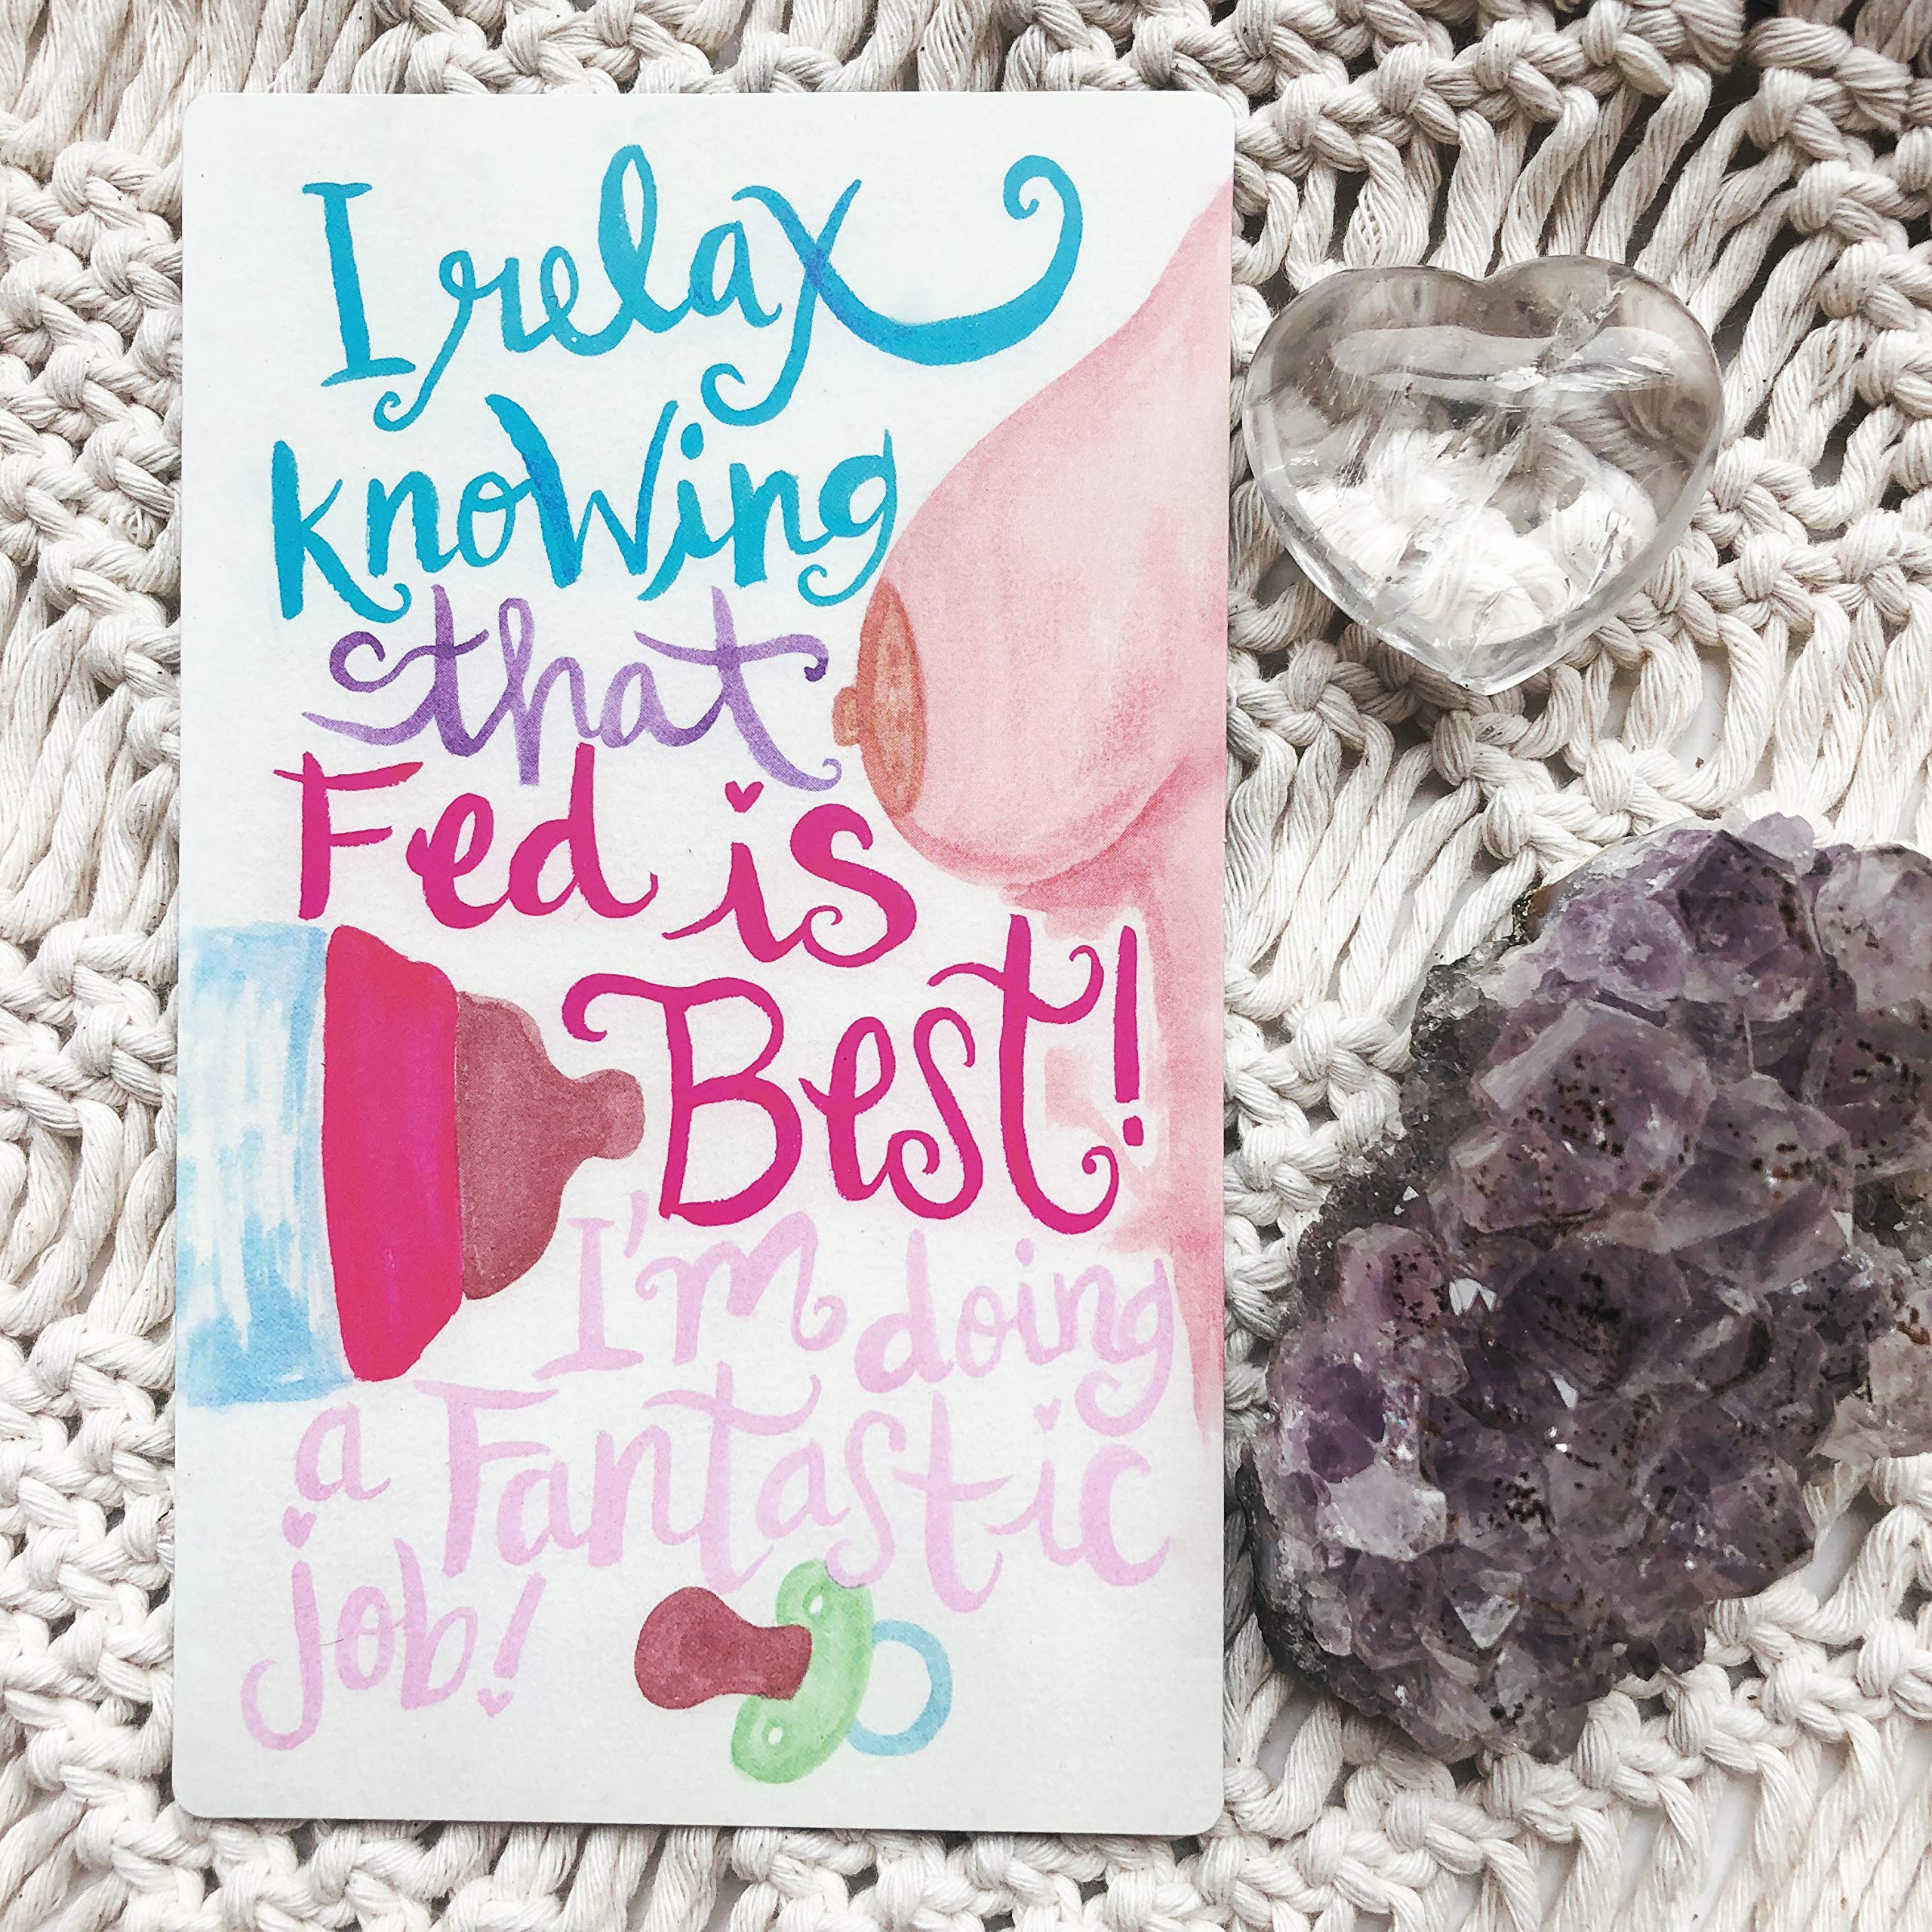 I relax
knowing
that
Fed is
Best!
I'm doing
a Fantastic
job!